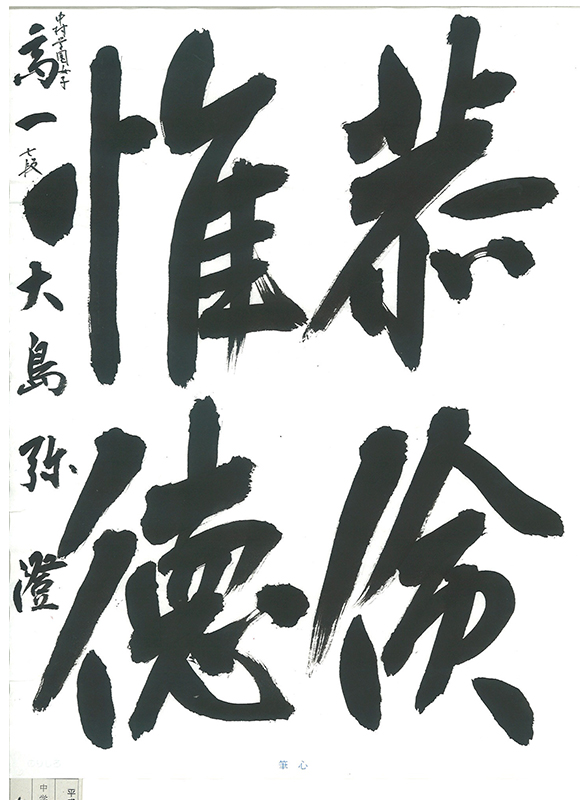 恭倹
惟徳
中村学園女子
高一 七段 大島弥澄
筆心
中学
平